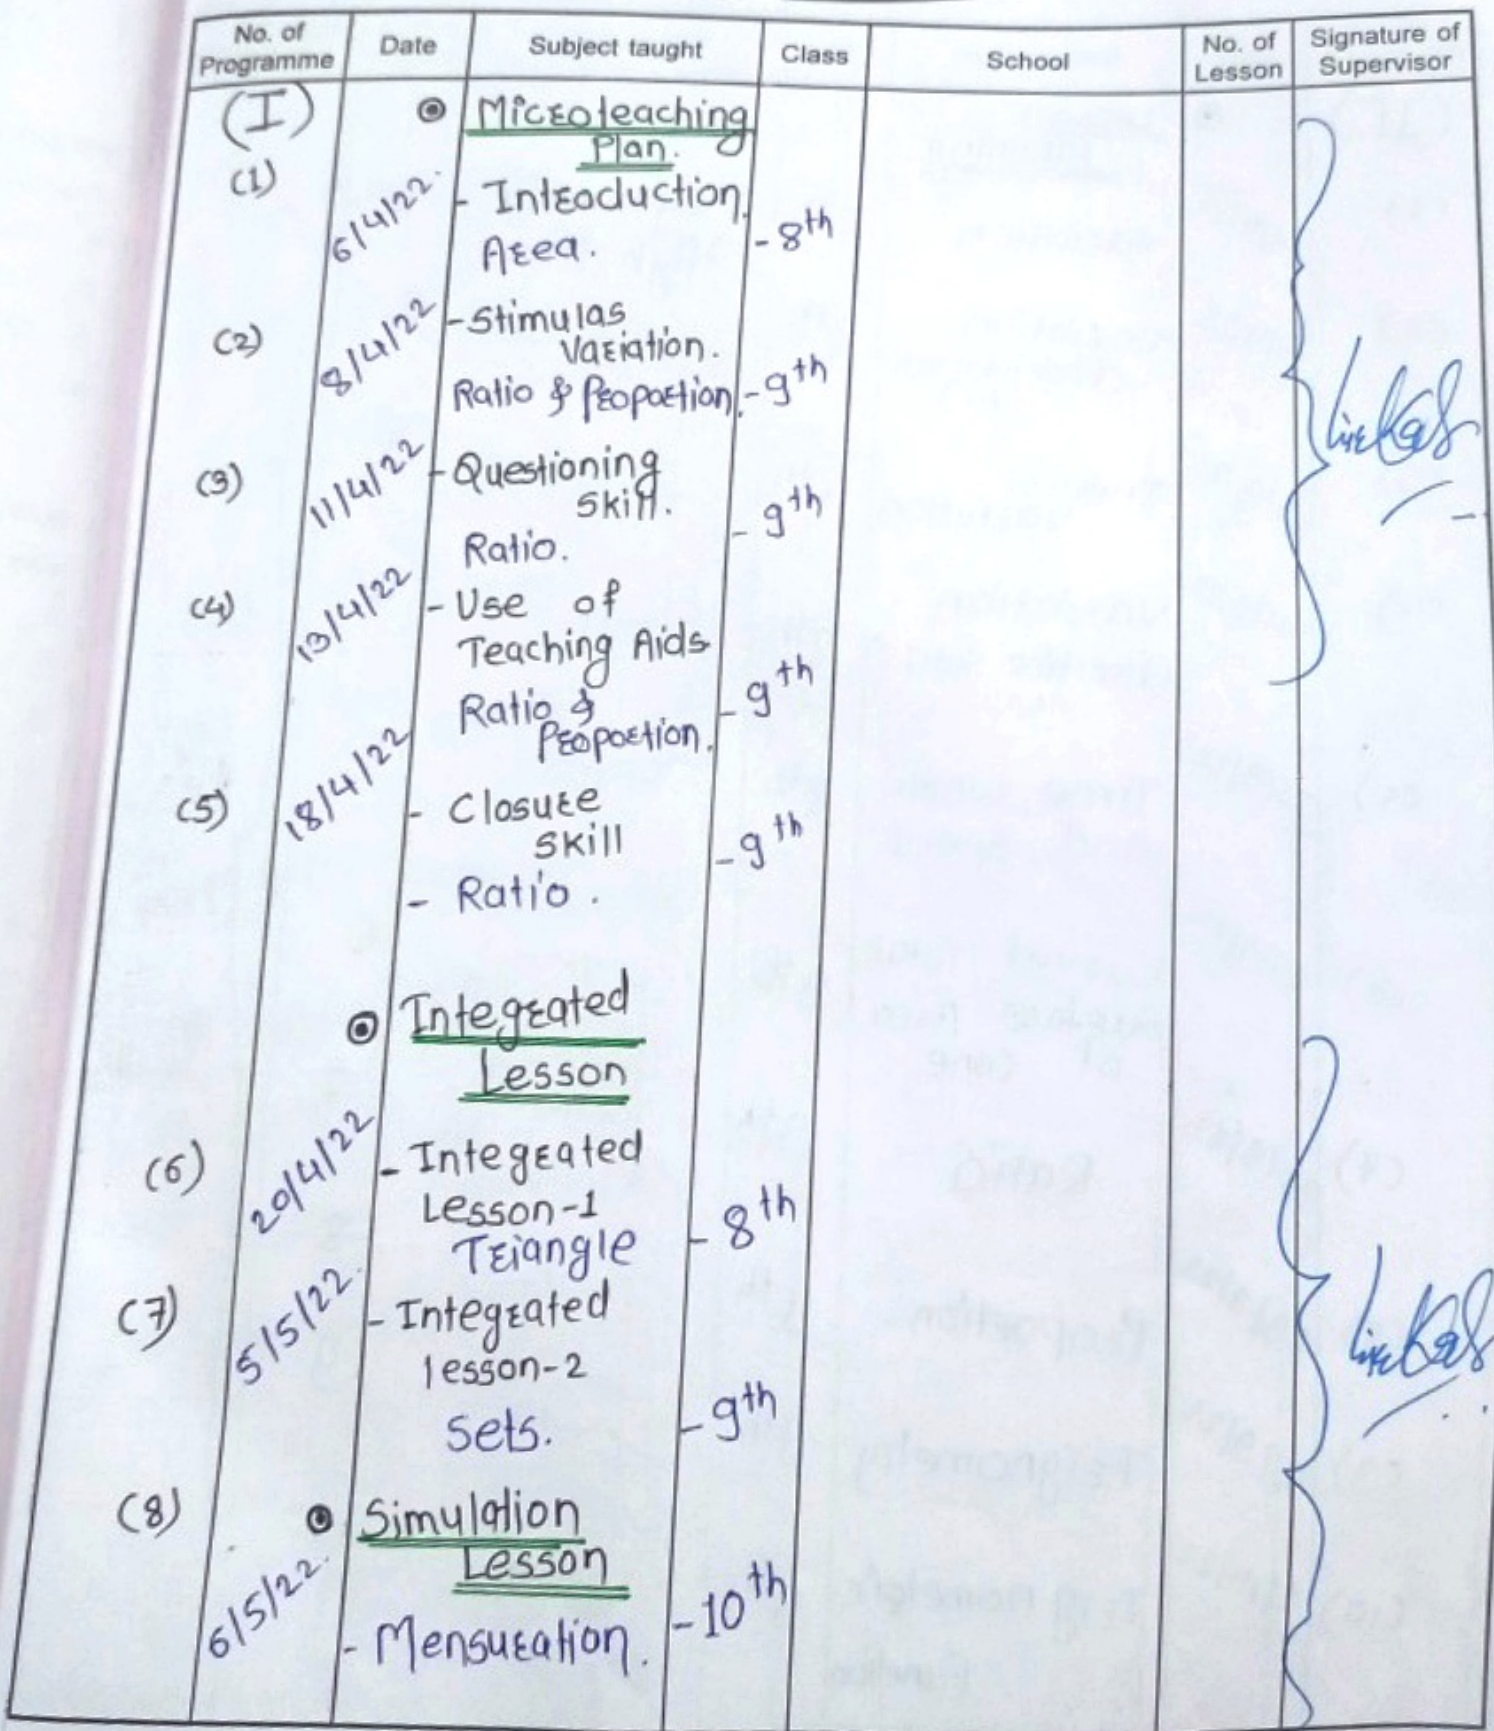 No. of Programme Date Subject taught Class School No. of Lesson Signature of Supervisor
(I) Microteaching
Plan.
(1) 6/4/22. - Introduction
Area. - 8th
(2) 8/4/22 - Stimulas
Variation.
Ratio & Proportion. - 9th
(3) 11/4/22 - Questioning
Skill.
Ratio. - 9th
(4) 13/4/22 - Use of
Teaching Aids
Ratio & - 9th
Proportion.
(5) 18/4/22 - Closure
Skill - 9th
- Ratio.
Integrated
Lesson
(6) 20/4/22 - Integrated
Lesson-1
Triangle - 8th
(7) 5/5/22. - Integrated
lesson-2
Sets. - 9th
(8) Simulation
Lesson
6/5/22. - Mensuration. - 10th